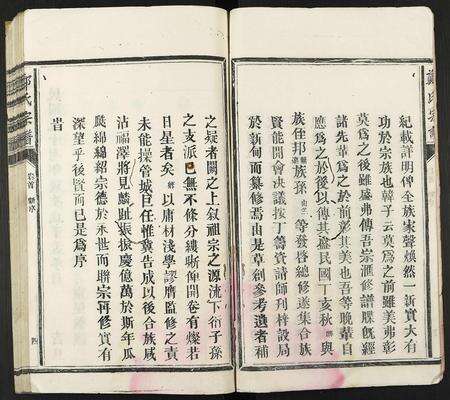 紀載詳明俾全族家聲煥然一新實大有
功於宗族也韓子云莫為之前雖美弗彰
莫為之後雖盛弗傳吾宗滙修譜牒既經
諸先輩為之於前彰其美也吾等晚輩自
應為之於後以傳其盛民國丁亥秋 與
族侄邦 族孫 等發啓總修遂集合族
賢能開會決議按丁籌資請師刊梓設局
於新甸而纂修焉由是草創參考遺者補
之疑者闕之上叙祖宗之源流下衍子孫
之支派已無不條分縷晰俾開卷有燦若
日星者矣 以庸材淺學謬膺監修之責
未能操管城巨任惟冀告成以後合族咸
沾福澤將見麟趾振振慶億萬於斯年瓜
瓞綿綿紹宗德於永世而聯宗再修實有
深望乎後賢而已是為序
旹
氏宗譜
卷首
四